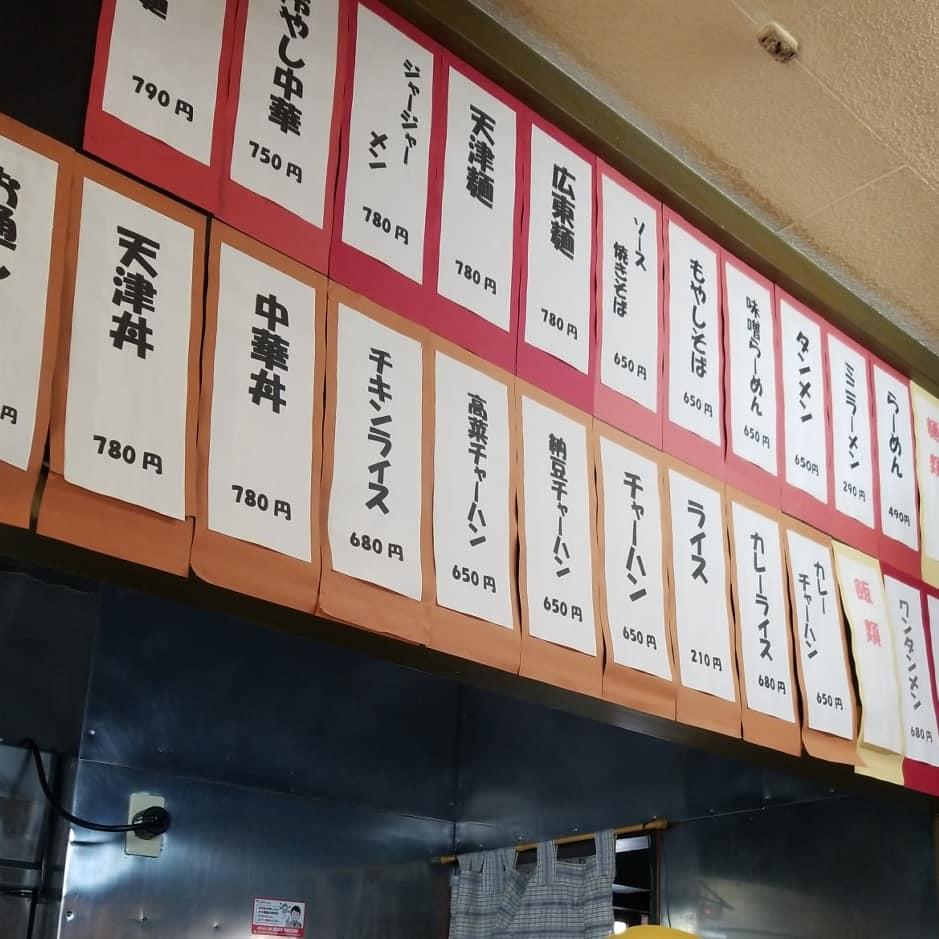 麺類
らーめん
490円
ミニラーメン
290円
タンメン
650円
味噌らーめん
650円
もやしそば
650円
ソース
焼きそば
650円
広東麺
780円
天津麺
780円
ジャージャー
メン
780円
冷やし中華
750円
麺
790円
ワンタンメン
680円
飯類
カレー
チャーハン
650円
カレーライス
680円
ライス
210円
チャーハン
650円
納豆チャーハン
650円
高菜チャーハン
650円
チキンライス
680円
中華丼
780円
天津丼
780円
円